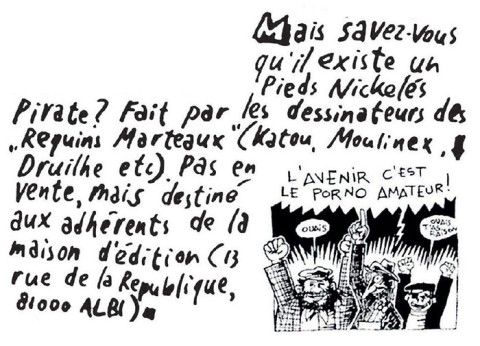 Mais savez-vous
qu'il existe un
Pieds Nickelés
Pirate? Fait par les dessinateurs des
"Requins Marteaux" (Katou, Moulinex,
Druilhe etc). Pas en
vente, mais destiné
aux adhérents de la
maison d'édition (13
rue de la Republique,
81000 ALBI).
L'AVENIR C'EST
LE PORNO AMATEUR!
OUAIS
OUAIS
T'AS
RAISON